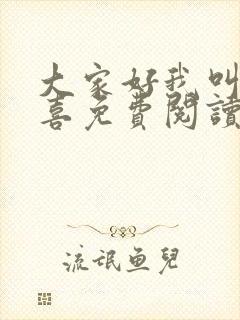 大家好我叫
喜免費閱讀
流氓鱼兒